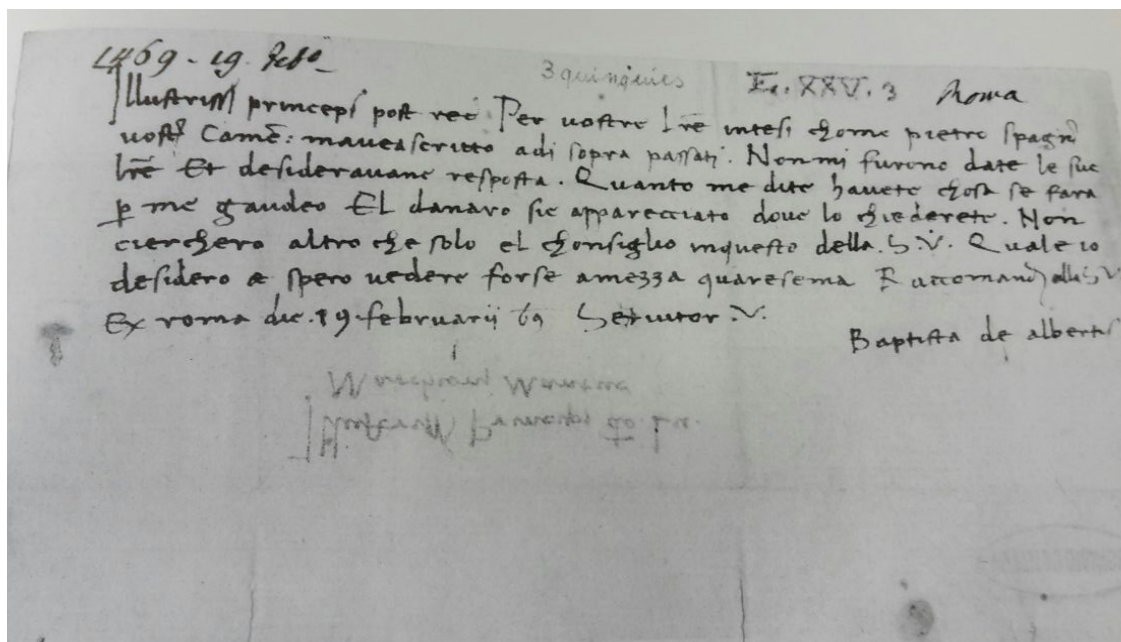 1469 - 19. Feb.º
3 quinquies
E. XXV. 3 Roma
Illustriss princeps post rec̄ Per vostre lr̄e intesi chome pietro spagn
vostr Cam̄e: maveascritto adi sopra passati. Non mi furono date le sue
lr̄e Et desideravane resposta. Quanto me dite havete chosa se fara
ꝑ me gaudeo El danaro sie apparecciato dove lo chiederete. Non
cierchero altro che solo el chonsiglio inquesto della .S.V. Quale io
desidero e spero vedere forse amezza quaresema Raccomand alla S V
Ex roma die .19. februarii 69 Servitor .V.
Baptista de albertis
Marchioni Mantue
Illustriss Principi do. Lu.